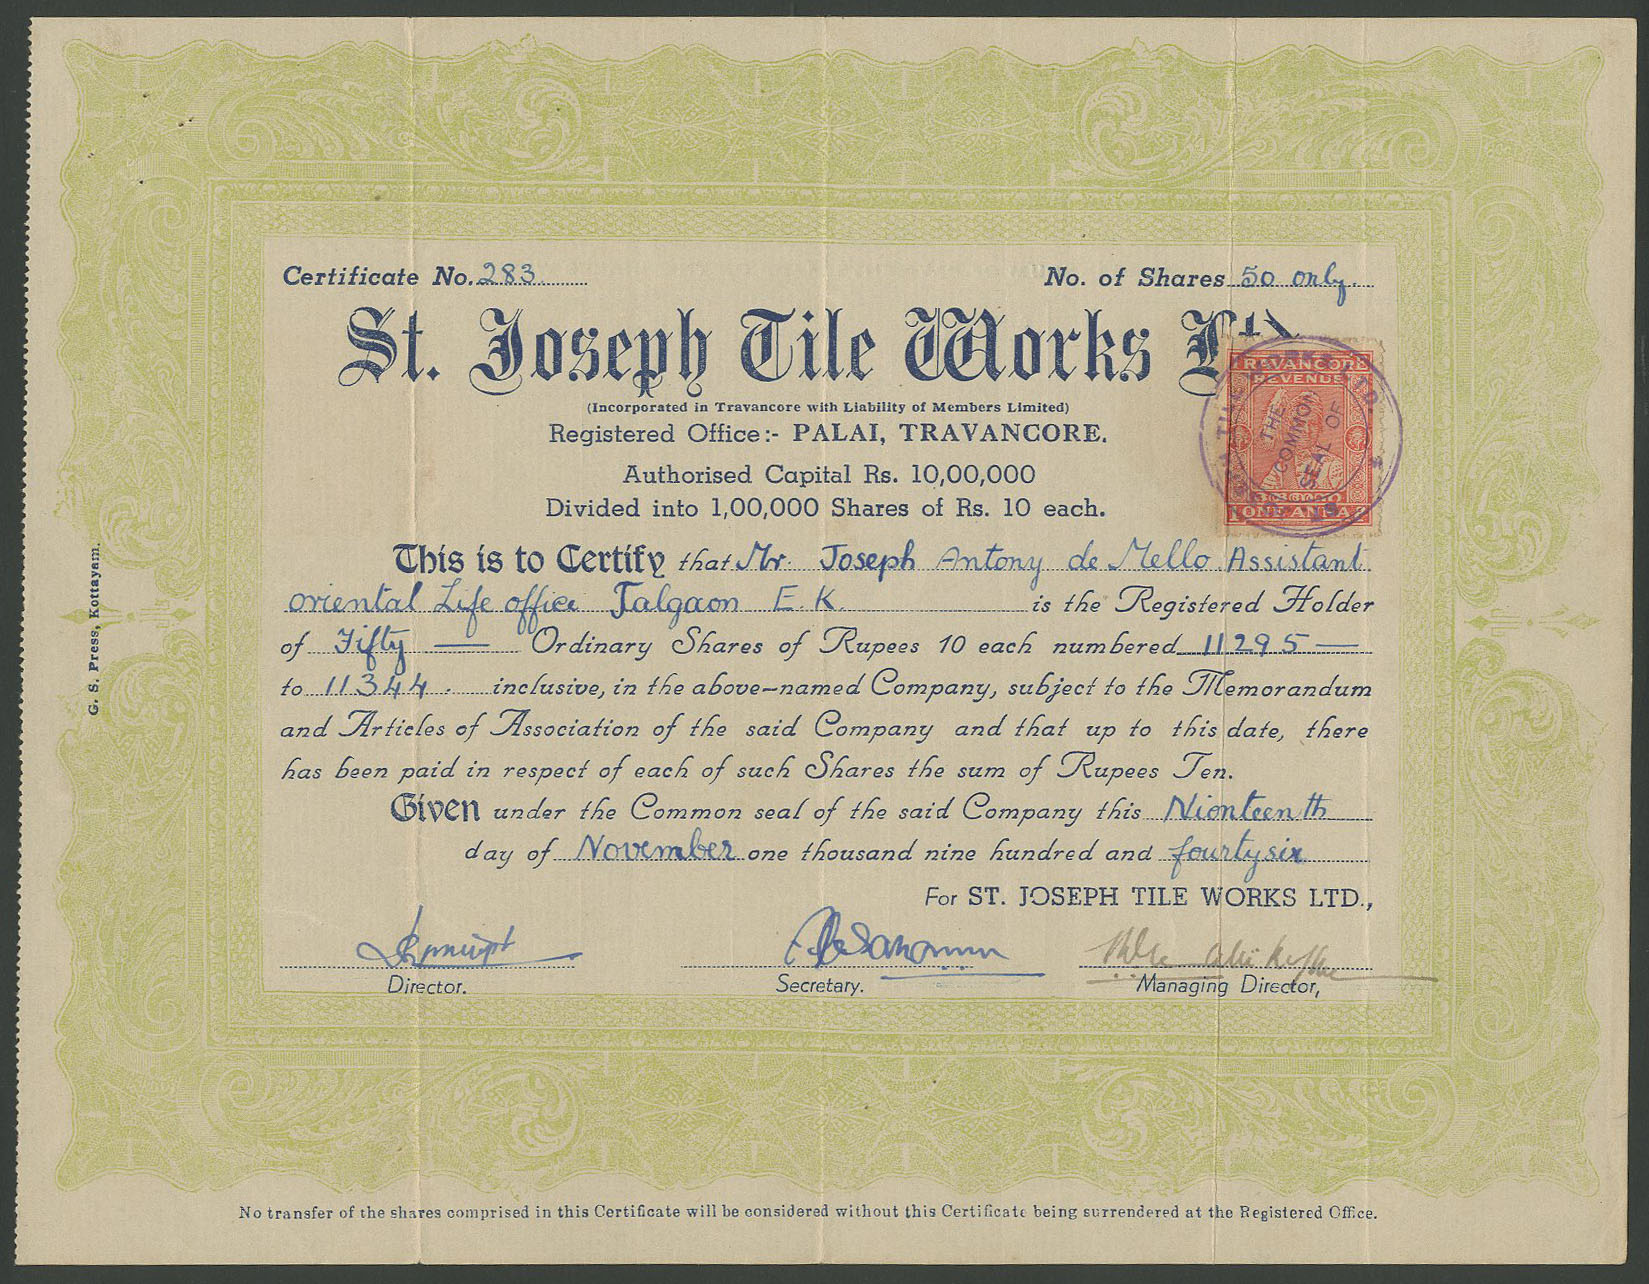 Certificate No. 283 No. of Shares 50 only.
St. Joseph Tile Works Ltd
(Incorporated in Travancore with Liability of Members Limited)
Registered Office:- PALAI, TRAVANCORE.
Authorised Capital Rs. 10,00,000
Divided into 1,00,000 Shares of Rs. 10 each.
TRAVANCORE
REVENUE
THE
COMMON
SEAL OF
ONE ANNA
This is to Certify that Mr. Joseph Antony de Mello Assistant
oriental Life office Jalgaon E. K. is the Registered Holder
of Fifty — Ordinary Shares of Rupees 10 each numbered 11295 —
to 11344 . inclusive, in the above-named Company, subject to the Memorandum
and Articles of Association of the said Company and that up to this date, there
has been paid in respect of each of such Shares the sum of Rupees Ten.
Given under the Common seal of the said Company this Nionteenth
day of November one thousand nine hundred and fourty six
For ST. JOSEPH TILE WORKS LTD.,
Director. Secretary. Managing Director,
G. S. Press, Kottayam.
No transfer of the shares comprised in this Certificate will be considered without this Certificate being surrendered at the Registered Office.